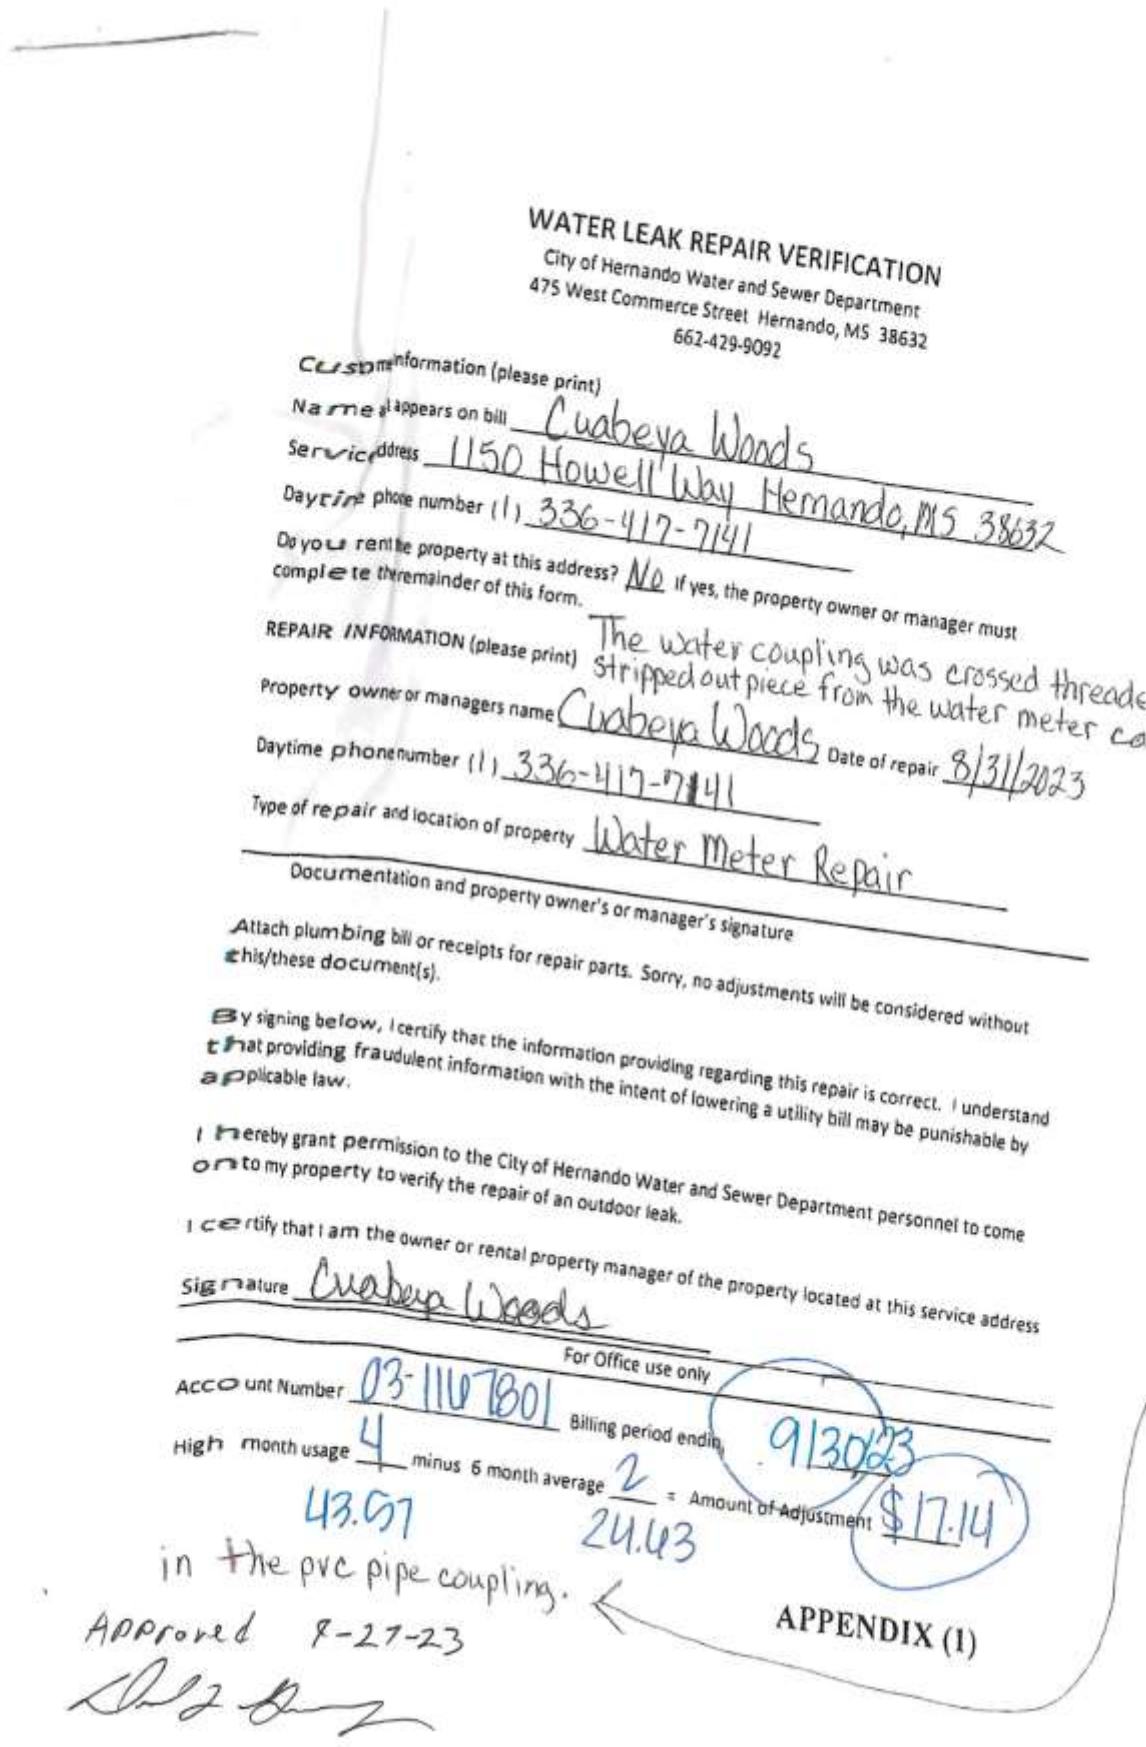 WATER LEAK REPAIR VERIFICATION
City of Hernando Water and Sewer Department
475 West Commerce Street Hernando, MS 38632
662-429-9092
Information (please print)
Name appears on bill Cuabeya Woods
Service address 1150 Howell Way Hernando, MS 38632
Daytime phone number (1) 336-417-7141
Do you rent the property at this address? No If yes, the property owner or manager must
complete the remainder of this form.
REPAIR INFORMATION (please print) The water coupling was crossed threade
stripped out piece from the water meter co
Property owner or managers name Cuabeya Woods Date of repair 8/31/2023
Daytime phone number (1) 336-417-7141
Type of repair and location of property Water Meter Repair
Documentation and property owner's or manager's signature
Attach plumbing bill or receipts for repair parts. Sorry, no adjustments will be considered without
this/these document(s).
By signing below, I certify that the information providing regarding this repair is correct. I understand
that providing fraudulent information with the intent of lowering a utility bill may be punishable by
applicable law.
I hereby grant permission to the City of Hernando Water and Sewer Department personnel to come
onto my property to verify the repair of an outdoor leak.
I certify that I am the owner or rental property manager of the property located at this service address
Signature Cuabeya Woods
For Office use only
Account Number 03-1167801 Billing period endin 913023
High month usage 4 minus 6 month average 2 = Amount of Adjustment $17.14
24.43
in the pvc pipe coupling.
APPENDIX (1)
Approved